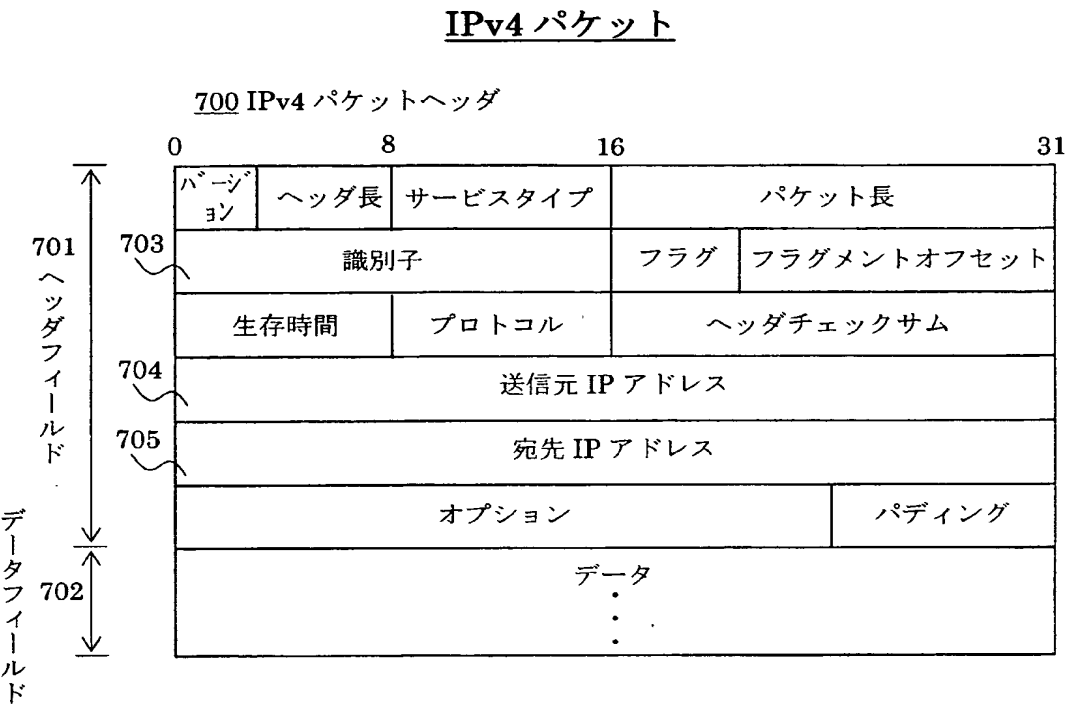 IPv4 パケット
700 IPv4 パケットヘッダ
0 8 16 31
バージョン ヘッダ長 サービスタイプ パケット長
701 ヘッダフィールド
703
識別子 フラグ フラグメントオフセット
生存時間 プロトコル ヘッダチェックサム
704
送信元 IP アドレス
705
宛先 IP アドレス
オプション パディング
702 データフィールド
データ